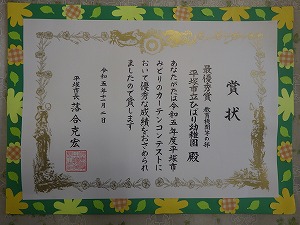 賞状
最優秀賞 教育機関等の部
平塚市立ひばり幼稚園 殿
あなたがたは令和五年度平塚市
みどりのカーテンコンテストに
おいて優秀な成績をおさめられ
ましたので賞します
令和五年十一月二日
平塚市長 落合克宏